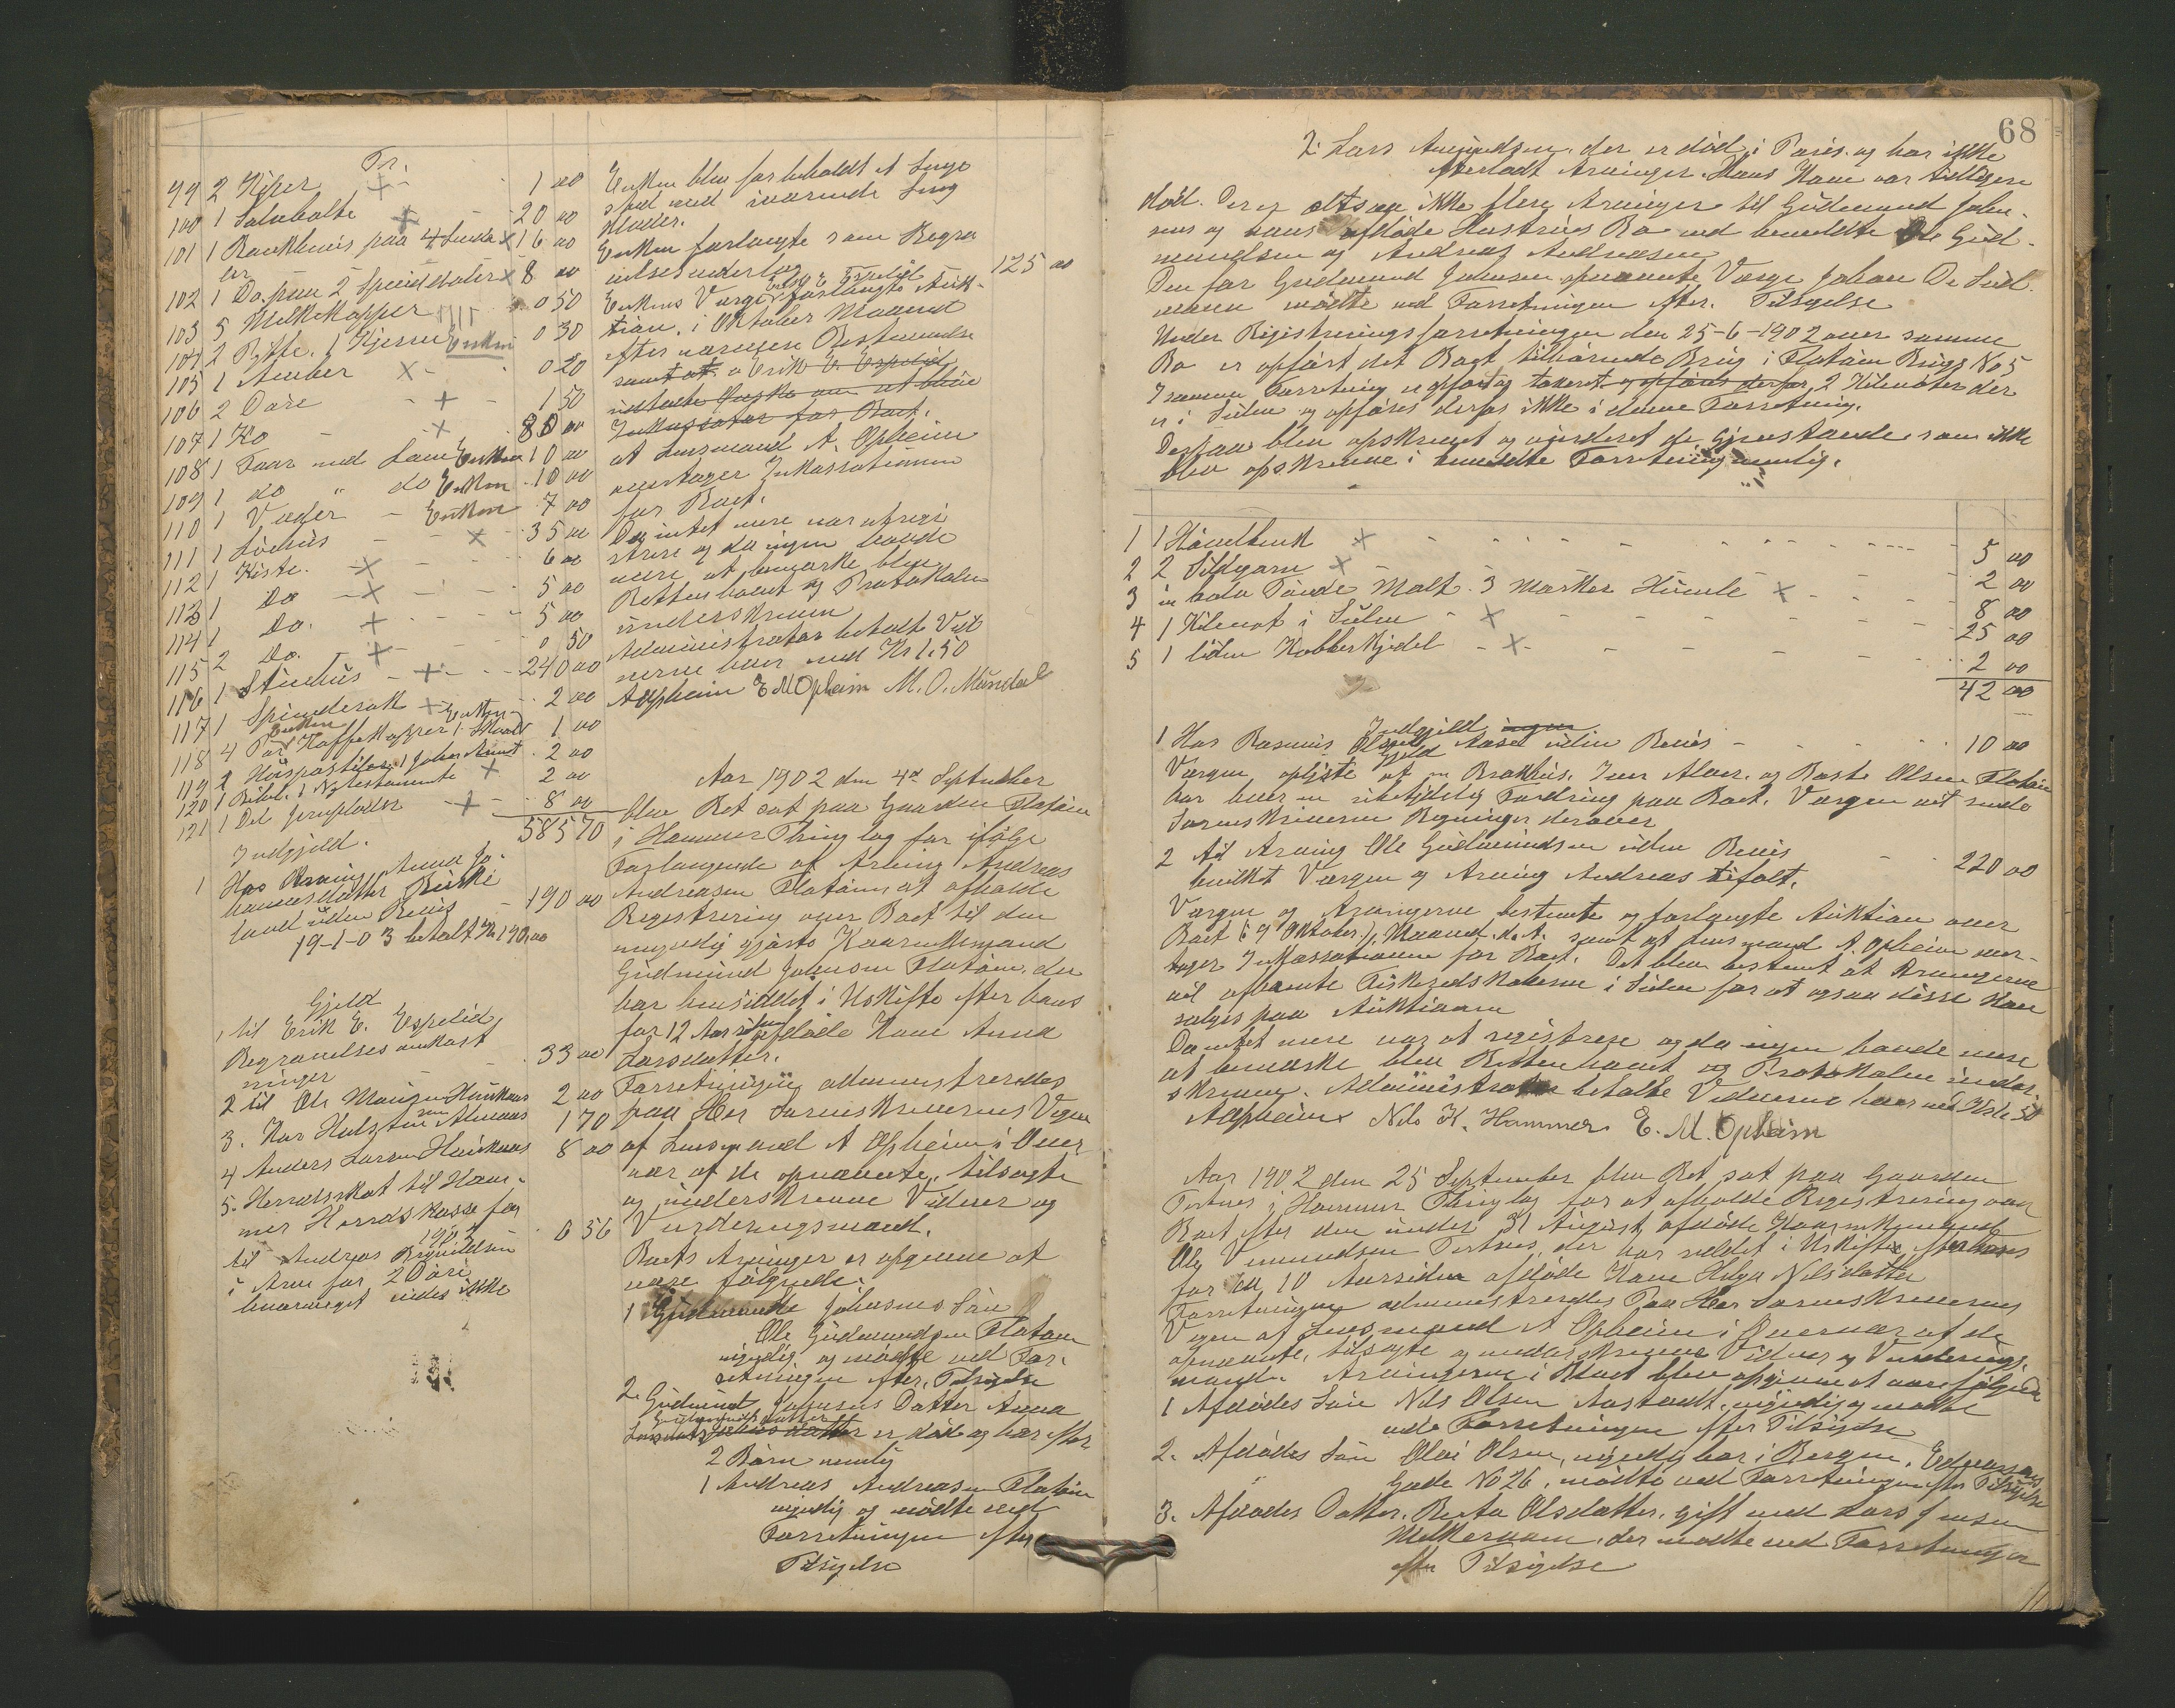 Tr.
99 2 Kiper + - 1 00
100 1 + - 20 00
101 1 paa 4 x 16 00
102 1 Do. paa 2 Speciedaler x 8 00
103 5 Melkekopper 0 50
104 2 Bøtte. 1 Kjerne Enken 0 30
105 1 Amber x - 0 20
106 2 - + - 1 50
107 1 Ko - + 80 00
108 1 Faar med Lam Enken 10 00
109 1 do " do Enken 10 00
110 1 Væder - Enken 7 00
111 1 - - x - 35 00
112 1 Kiste. - x - - 6 00
113 1 Do - x - - 5 00
114 1 Do. + - - 5 00
115 2 Do. + - 0 50
116 1 Stuehus - + - - 240 00
117 1 Spinderok + Enken 2 00
118 4 Par Kaffekopper 1 Enken 1 00
119 2 Huspostiler 1 2 00
120 1 Bibel. 1 Nytestamente + 2 00
121 1 Del + - - 8 00
585 70
Indgjæld.
1 Hos Arving Anna Jo-
hannesdatter
land uden Bevis - 190 00
19-1-03 betalt Kr 190,00
Gjæld
1 til Erik E. Espelid
Begravelsesomkost
ninger - - 33 00
2 til Ole Monsen Haukaas 2 00
3. Halsten 1 70
4 Anders Larsen Haukaas 8 00
5. Herredsskat til Ham-
mer Herredskasse for
1902 6 56
til Andreas Brynildsen
i Arne for 2
hvormeget vides ikke
Enken blev forbeholdt et Senge
sted med iværende Seng
klæder.
Enken forlangte som Begra
velsesunderlag 125 00
Enkens Værge Erik E. Espelid forlangte Auk-
tion. i Oktober Maaned
efter nærmere Bestemmelse
samt at Erik E. Espelid
udtalte Ønske om at blive
Inkassator for Boet.
at Lensmand A. Opheim
overtager Inkassationen
for Boet.
Da intet mere var at regi
strere og da ingen havde
mere at bemærke blev
Retten hævet og Protokolen
underskreven
Administrator betalt Vid
nerne hver med Kr 1.50
AOpheim E M Opheim M. O. Mundal
Aar 1902 den 4de September
blev Ret sat paa Gaarden Flatøen
i Hammer Thinglag for ifølge
Forlangende af Arving Andreas
Andreasen Flatøen at afholde
Registrering over Boet til den
umyndig gjorte Kaarmand
Gudmund Johnsen Flatøen, der
har hensiddet i Uskifte efter hans
for 12 Aar siden afdøde Kone Anna
Larsdatter.
Forretningen administreredes
paa Hr Sorenskriverens Vegne
af Lensmand A Opheim i Over
vær af de opnævnte, tilsagte
og underskrevne Vidner og
Vurderingsmænd.
Boets Arvinger er opgivne at
være følgende:
1 Gudmund Johnsens Søn
Ole Gudmundsen Flatøen
myndig og mødte ved For-
retningen efter Tilsigelse
2. Gudmund Johnsens Datter Anna
Gudmundsdatter
er død og har efter
2 Børn nemlig
1 Andreas Andreasen Flatøen
myndig og mødte ved
Forretningen efter
Tilsigelse
68
2. Lars Amundsen der er død i Paris og har ikke
efterladt Arvinger. Hans Kone var tidligere
død. Der er altsaa ikke flere Arvinger til Gudmund John-
sens og hans afdøde Hustrus Bo end bemeldte Ole Gud-
mundsen og Andreas Andreasen
Den for Gudmund Johnsen opnævnte Værge Johan
mødte ved Forretningen efter Tilsigelse
Under Registreringsforretningen den 25-6-1902 over samme
Bo er opført det Boet tilhørende Brug i Flatøen Brugs No 5
I samme Forretning er opført og taxeret og opføres derfor 2 Kilenøter der
er i Søen og opføres derfor ikke i denne Forretning.
Derpaa blev opskrevet og vurderet de Gjenstande som ikke
blev opskrevne i bemeldte Forretning nemlig:
1 1 Høvelbenk x - - - - 5 00
2 2 Sildgarn x - - 2 00
3 en halv Tønde Malt. 3 Marker Humle x - - 8 00
4 1 Kilenot i Søen - x - - 25 00
5 1 liden Kobberkjedel - x - - 2 00
42 00
Indgjæld ingen
1 Hos Rasmus Olsen Aase uden Bevis - - 10 00
Gjæld
Værgen oplyste at Brakhus, Iver og Baste Olsen Flatøen
har hver en Fordring paa Boet. Værgen vil sende
Sorenskriveren Regninger derover
2 til Arving Ole Gudmundsen uden Bevis - - 220 00
hvilket Værgen og Arving Andreas tifalt.
Værgen og Arvingerne bestemte og forlangte Auktion over
Boet i Oktober Maaned d. A. samt at Lensmand A. Opheim over-
tager Inkassationen for Boet. Det blev bestemt at Arvingerne
vil afhente Fiskeredskaberne i Søen for at ogsaa disse kan
sælges paa Auktionen
Da intet mere var at registrere og da ingen havde mere
at bemærke blev Retten hævet og Protokolen under-
skreven. Administrator betalte Vidnerne hver med Kr 1.50
AOpheim Nils K. Hammer E. M. Opheim
Aar 1902 den 25 September blev Ret sat paa Gaarden
Tertnes i Hammer Thinglag for at afholde Registrering over
Boet efter den under 31 August afdøde Kaarmand
Ole Vemundsen Tertnes, der har siddet i Uskifte efter hans
for ca 10 Aar siden afdøde Kone Helga Nilsdatter
Forretningen administreredes paa Hr Sorenskriverens
Vegne af Lensmand A Opheim i Overvær af de
opnævnte, tilsagte og underskrevne Vidner og Vurderings-
mænd. Arvingerne i Boet blev opgivne at være følgende
1 Afdødes Søn Nils Olsen Aastvedt, myndig og mødte
ved Forretningen efter Tilsigelse
2. Afdødes Søn Olai Olsen, myndig bor i Bergen,
Gade No 26, mødte ved Forretningen efter Tilsigelse
3. Afdødes Datter, Berta Olsdatter, gift med Lars Jensen
der mødte ved Forretningen
efter Tilsigelse